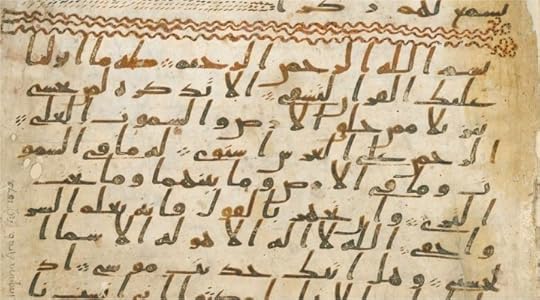 تسمع لهم ركزا
بسم الله الرحمن الرحيم طه ما انزلنا
عليك القران لتشقى الا تذكرة لمن يخشى
تنزيلا ممن خلق الارض والسموت العلى
الرحمن على العرش استوى له ما في السمو
ت وما في الارض وما بينهما وما تحت
الثرى وان تجهر بالقول فانه يعلم السر
واخفى الله لا اله الا هو له الاسما ا
لحسنى وهل اتيك حديث موسى اذ